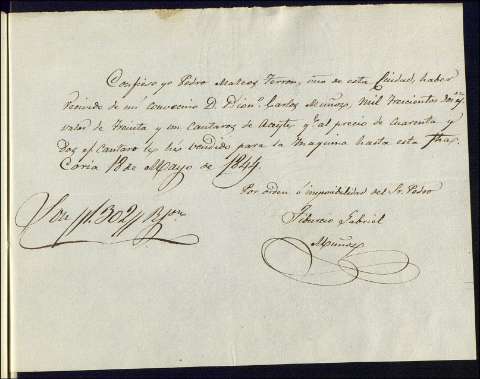 Confieso yo Pedro Mateos Terron, de esta Ciudad, haber
recivido de mi convecino D. Dion.º Carlos Muñoz, mil trecientos dos r.s
valor de treinta y un cantaros de Aceyte q.e al precio de cuarenta y
dos r.s cantaro le hé vendido para su Maquina hasta esta fha.
Coria 18 de Mayo de 1844.
Por orden é imposibilidad del Sr. Pedro
Son 1.302 R.s von
Gabriel
Muñoz